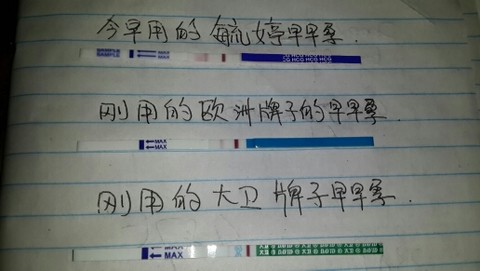 今早用的毓婷早早孕.
SAMPLE SAMPLE MAX MAX HCG HCG HCG
刚用的欧洲牌子的早早孕
MAX
刚用的大卫牌子早早孕.
MAX MAX